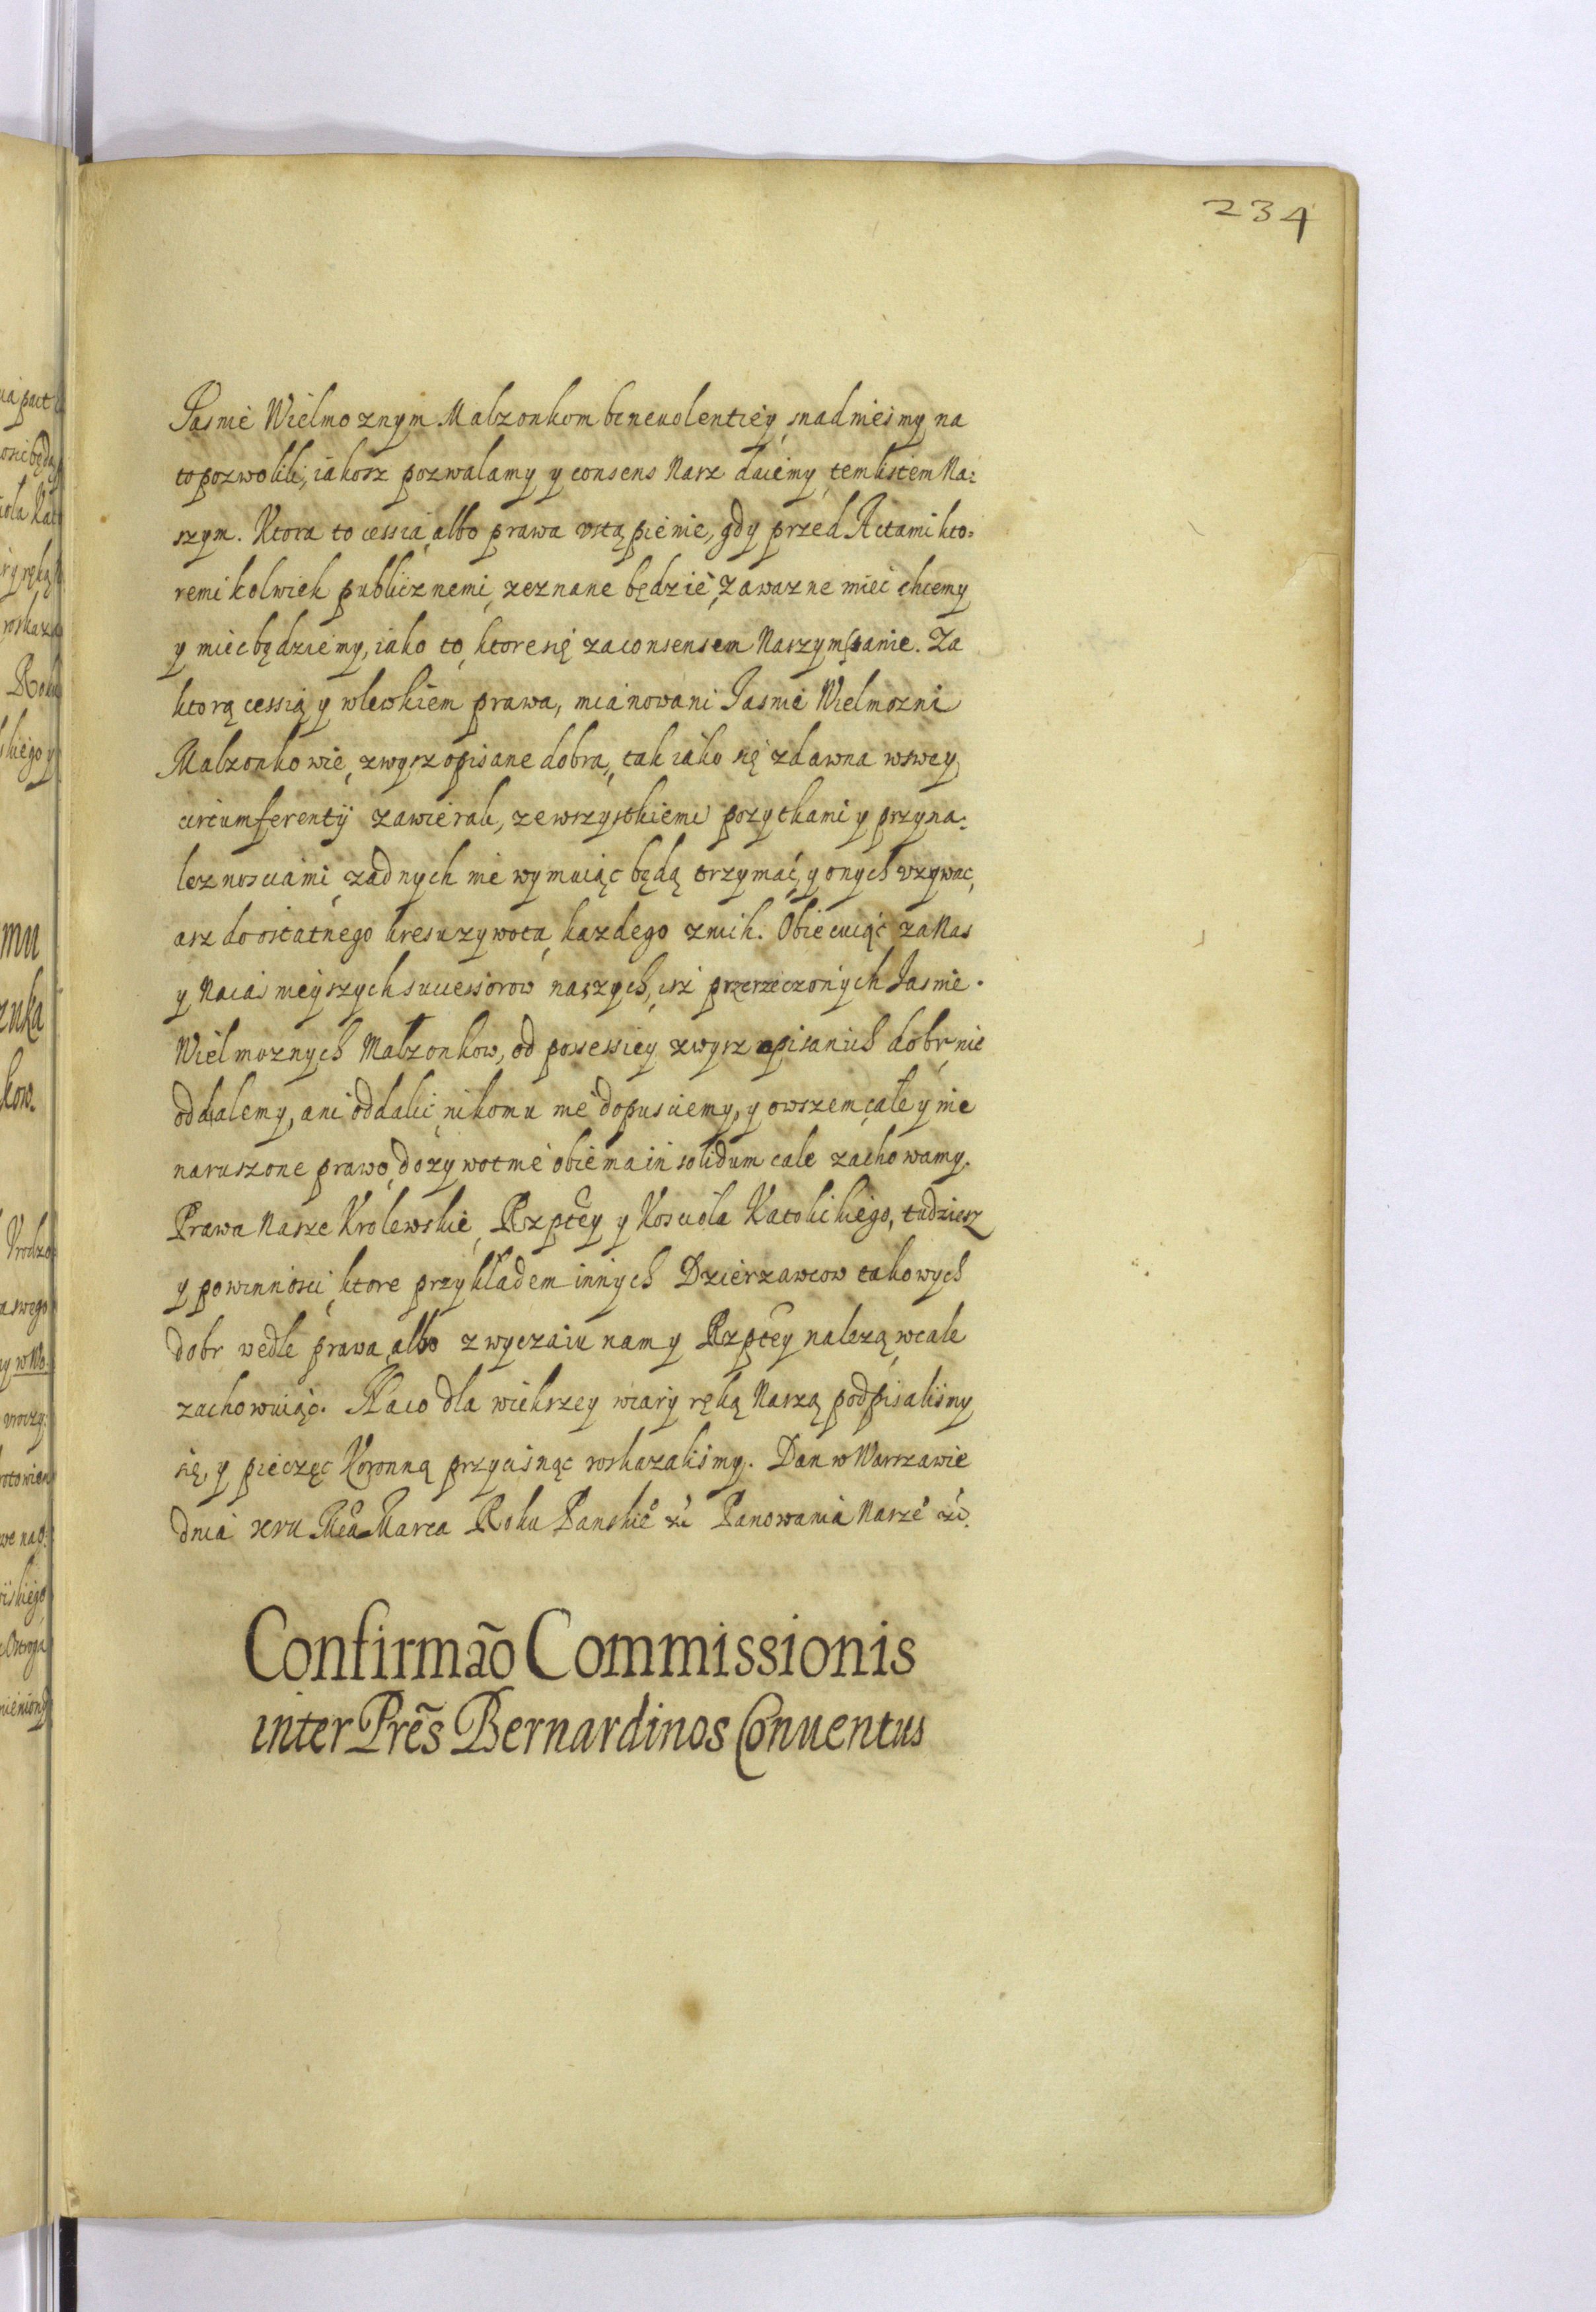 234
Jasnie Wielmoznym Malzonkom beneuolentiey, snadniesmy na
to pozwolili, iakosz pozwalamy y consens Nasz daiemy, tem listem Na:
szym. Ktora to cessia, albo prawa vstąpienie, gdy przed Actami kto:
remi kolwiek publicznemi, zeznane będzie, za wazne miec chcemy
y miec będziemy, iako to, ktore się za consensem Naszym stanie. Za
ktorą cessią y wlewkiem prawa, mianowani Jasnie Wielmozni
Malzonkowie, zwysz opisane dobra, tak iako się zdawna w swey
circumferentij zawierali, ze wszystkiemi pozytkami y przyna:
leznosciami, zadnych nie wymuiąc będą trzymać, y onych vzywac,
asz do ostatnego kresu zywota, kazdego z nich. Obiecuiąc za Nas
y Naiasnieyszych successorow naszych, isz przerzeczonych Jasnie
Wielmoznych Malzonkow, od possessiey zwysz opisanich dobr, nie
oddalemy, ani oddalic, nikomu nie dopusciemy, y owszem, całe y nie
naruszone prawo, dozywotnie obiema in solidum cale zachowamy.
Prawa Nasze Krolewskie, Rzptey y Kosciola Katolickiego, tudziesz
y powinnosci, ktore przykładem innych Dzierzawcow takowych
dobr wedle prawa, albo zwyczaiu nam y Rzptey nalezą, wcale
zachowuiąc. Na co dla wiekszey wiary ręką Naszą podpisalismy
się, y pieczęc Koronną przycisnąc roskazalismy. Dan w Warszawie
dnia xvii Mca Marca Roku Panskie Panowania Nasze
Confirmão Commissionis
inter Pres̃ Bernardinos Conuentus